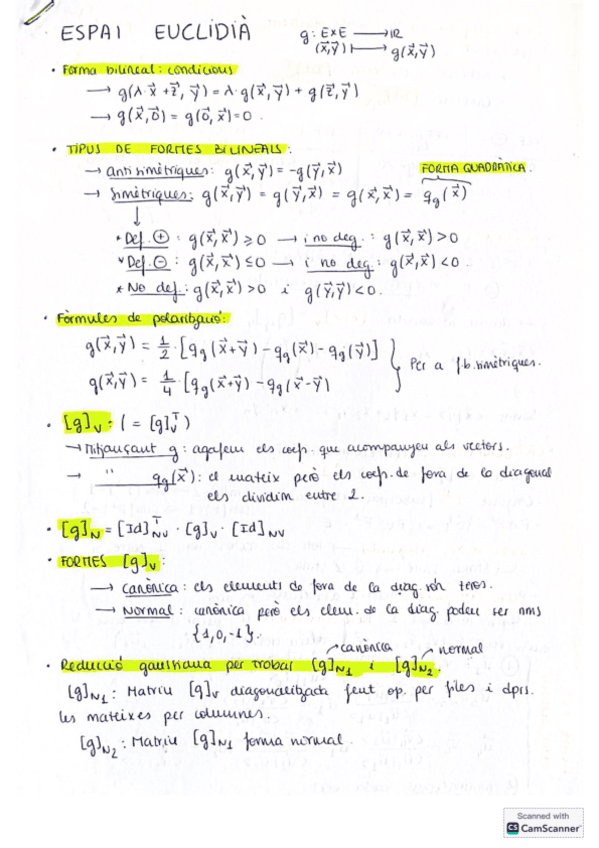 ESPAI EUCLIDIÀ
g: E×E ⟶ ℝ
(x⃗,y⃗) ⟼ g(x⃗,y⃗)
• Forma bilineal: condicions
⟶ g(λ·x⃗ + z⃗, y⃗) = λ·g(x⃗,y⃗) + g(z⃗,y⃗)
⟶ g(x⃗,0⃗) = g(0⃗,x⃗) = 0.
• TIPUS DE FORMES BILINEALS:
→ antisimètriques: g(x⃗,y⃗) = -g(y⃗,x⃗)
FORMA QUADRÀTICA.
→ simètriques: g(x⃗,y⃗) = g(y⃗,x⃗) = g(x⃗,x⃗) = q_g(x⃗)
↓
* Def. ⊕ : g(x⃗,x⃗) ≥ 0 → i no deg. : g(x⃗,x⃗) > 0
* Def. ⊖ : g(x⃗,x⃗) ≤ 0 → i no deg : g(x⃗,x⃗) < 0.
* No def.: g(x⃗,x⃗) > 0 i g(y⃗,y⃗) < 0.
• Fórmules de polarització:
g(x⃗,y⃗) = 1/2 · [q_g(x⃗+y⃗) - q_g(x⃗) - q_g(y⃗)]
g(x⃗,y⃗) = 1/4 · [q_g(x⃗+y⃗) - q_g(x⃗-y⃗)
} Per a f.b. simètriques.
• [g]_V : ( = [g]_V^T )
→ Mitjançant g: agafem els coef. que acompanyen als vectors.
→ " q_g(x⃗): el mateix però els coef. de fora de la diagonal
els dividim entre 2.
• [g]_N = [Id]_NV^T · [g]_V · [Id]_NV
• FORMES [g]_V :
⟶ canònica: els elements de fora de la diag. són zeros.
⟶ Normal: canònica però els elem. de la diag. poden ser nms
{1,0,-1}.
canònica normal
• Reducció gaussiana per trobar [g]_N1 i [g]_N2.
[g]_N1 : Matriu [g]_V diagonalitzada fent op. per files i dprs.
les mateixes per columnes.
[g]_N2 : Matriu [g]_N1 forma normal.
Scanned with
CS CamScanner